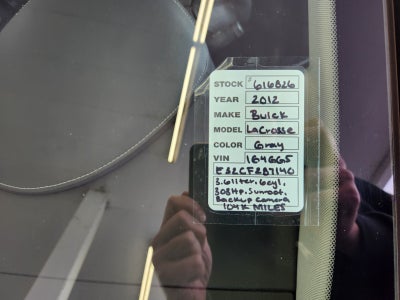 STOCK # 616826
YEAR 2012
MAKE Buick
MODEL LaCrosse
COLOR Gray
VIN 1G4GG5
E32CF287140
3.6liter, 6cyl,
303Hp, Sunroof,
Backup Camera
104K MILES